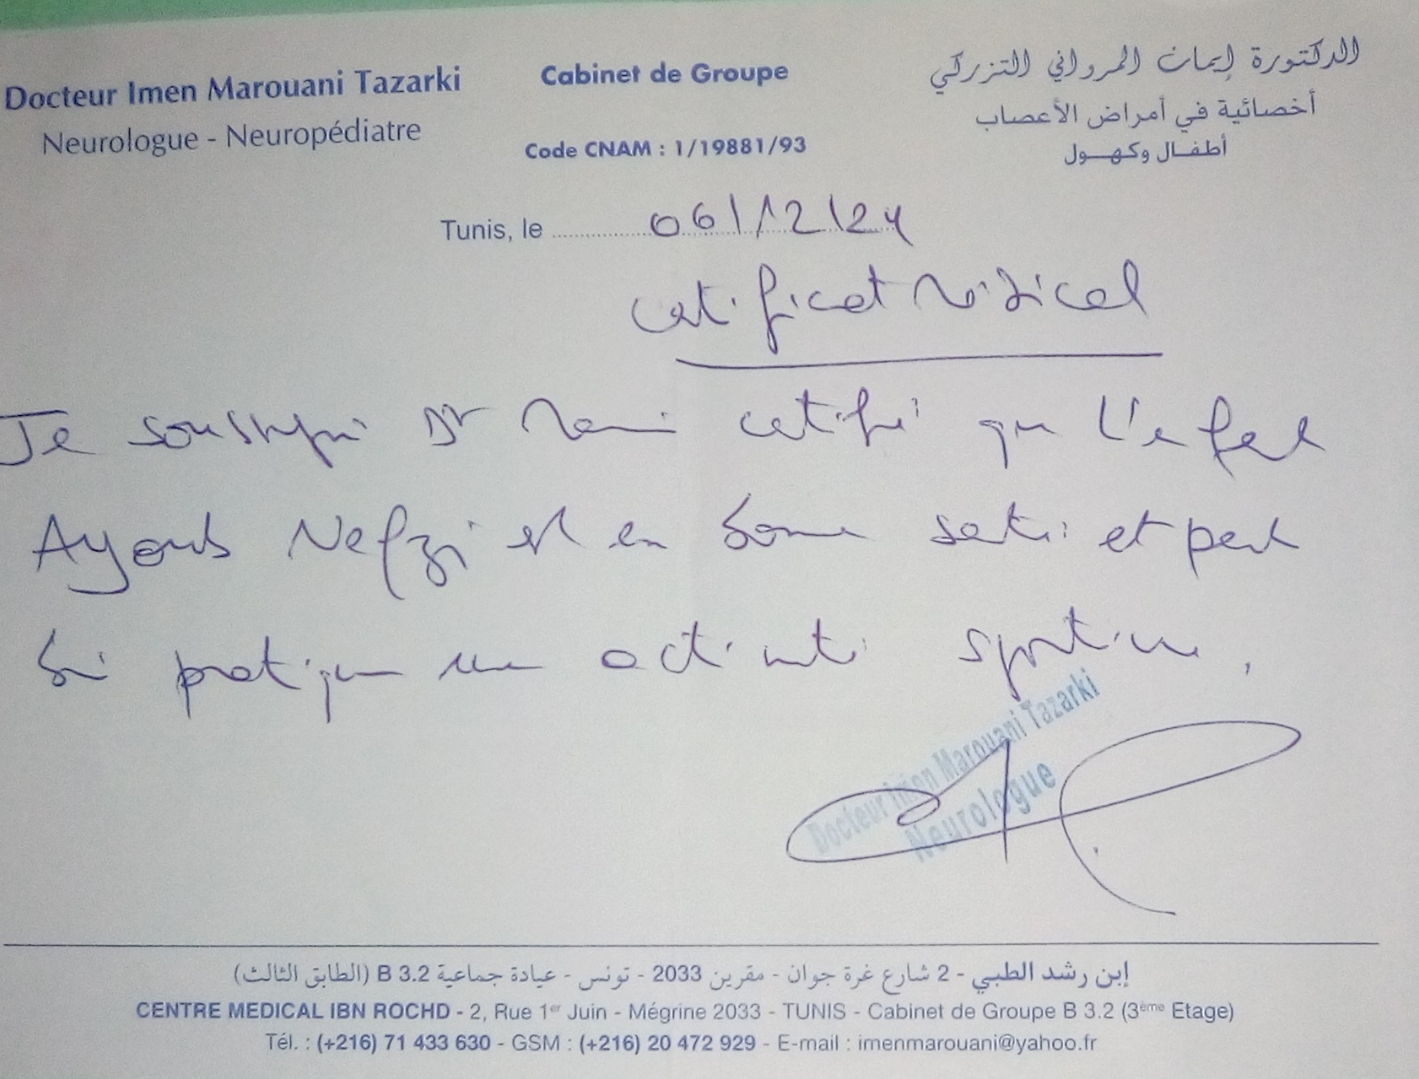 Docteur Imen Marouani Tazarki
Neurologue - Neuropédiatre
Cabinet de Groupe
Code CNAM : 1/19881/93
الدكتورة إيمان المرواني التزركي
أخصائية في أمراض الأعصاب
أطفال وكهول
Tunis, le 06/12/24
Certificat Médical
Je soussigné Dr certifie que l'enfant
Ayoub Nefzi est en bonne santé et peut
pratiquer une activité sportive.
Docteur Imen Marouani Tazarki
Neurologue
إبن رشد الطبي - 2 شارع غرة جوان - مقرين 2033 - تونس - عيادة جماعية B 3.2 (الطابق الثالث)
CENTRE MEDICAL IBN ROCHD - 2, Rue 1er Juin - Mégrine 2033 - TUNIS - Cabinet de Groupe B 3.2 (3ème Etage)
Tél. : (+216) 71 433 630 - GSM : (+216) 20 472 929 - E-mail : imenmarouani@yahoo.fr